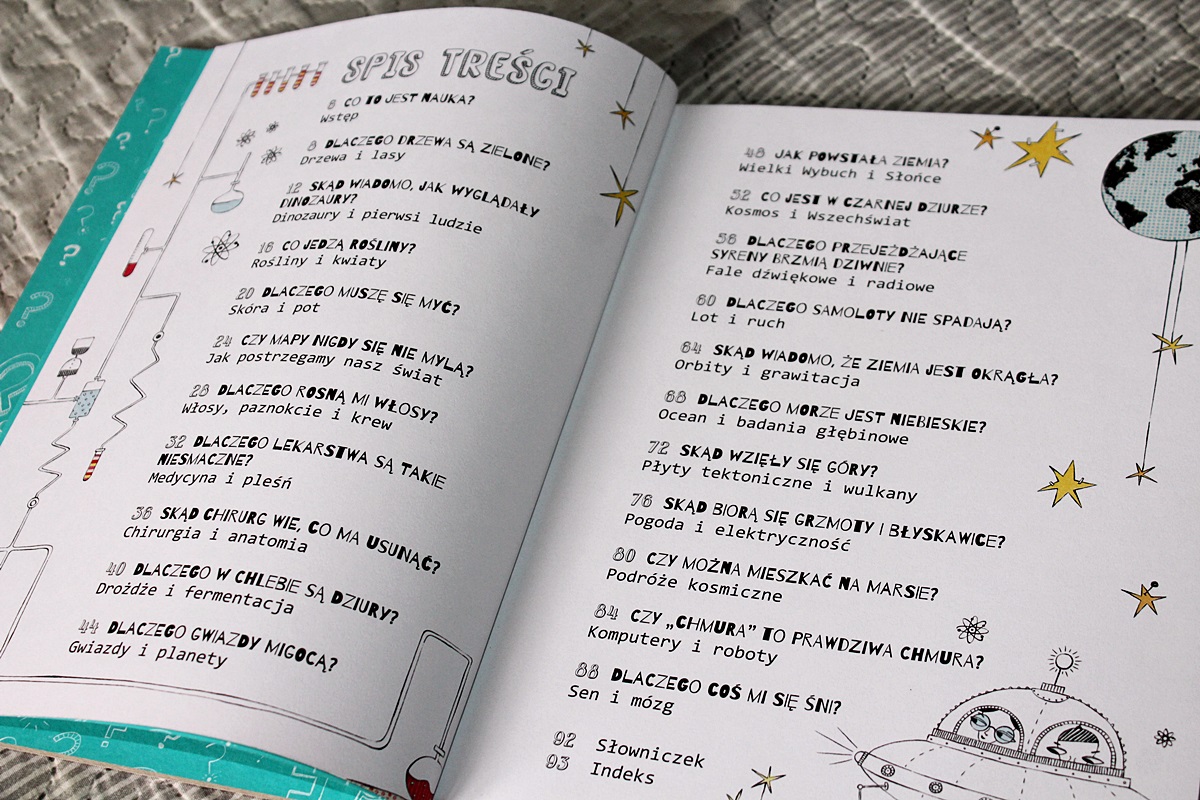 SPIS TREŚCI
6 CO TO JEST NAUKA?
Wstęp
8 DLACZEGO DRZEWA SĄ ZIELONE?
Drzewa i lasy
12 SKĄD WIADOMO, JAK WYGLĄDAŁY
DINOZAURY?
Dinozaury i pierwsi ludzie
16 CO JEDZĄ ROŚLINY?
Rośliny i kwiaty
20 DLACZEGO MUSZĘ SIĘ MYĆ?
Skóra i pot
24 CZY MAPY NIGDY SIĘ NIE MYLĄ?
Jak postrzegamy nasz świat
28 DLACZEGO ROSNĄ MI WŁOSY?
Włosy, paznokcie i krew
32 DLACZEGO LEKARSTWA SĄ TAKIE
NIESMACZNE?
Medycyna i pleśń
36 SKĄD CHIRURG WIE, CO MA USUNĄĆ?
Chirurgia i anatomia
40 DLACZEGO W CHLEBIE SĄ DZIURY?
Drożdże i fermentacja
44 DLACZEGO GWIAZDY MIGOCĄ?
Gwiazdy i planety
48 JAK POWSTAŁA ZIEMIA?
Wielki Wybuch i Słońce
52 CO JEST W CZARNEJ DZIURZE?
Kosmos i Wszechświat
56 DLACZEGO PRZEJEŻDŻAJĄCE
SYRENY BRZMIĄ DZIWNIE?
Fale dźwiękowe i radiowe
60 DLACZEGO SAMOLOTY NIE SPADAJĄ?
Lot i ruch
64 SKĄD WIADOMO, ŻE ZIEMIA JEST OKRĄGŁA?
Orbity i grawitacja
68 DLACZEGO MORZE JEST NIEBIESKIE?
Ocean i badania głębinowe
72 SKĄD WZIĘŁY SIĘ GÓRY?
Płyty tektoniczne i wulkany
76 SKĄD BIORĄ SIĘ GRZMOTY I BŁYSKAWICE?
Pogoda i elektryczność
80 CZY MOŻNA MIESZKAĆ NA MARSIE?
Podróże kosmiczne
84 CZY „CHMURA” TO PRAWDZIWA CHMURA?
Komputery i roboty
88 DLACZEGO COŚ MI SIĘ ŚNI?
Sen i mózg
92 Słowniczek
93 Indeks